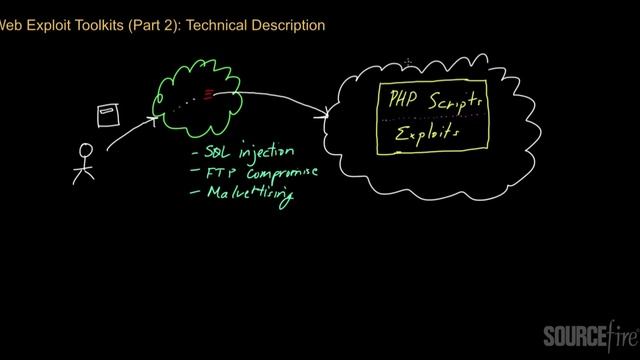 Web Exploit Toolkits (Part 2): Technical Description
PHP Scripts
Exploits
- SQL injection
- FTP compromise
- Malvertising
SOURCEfire